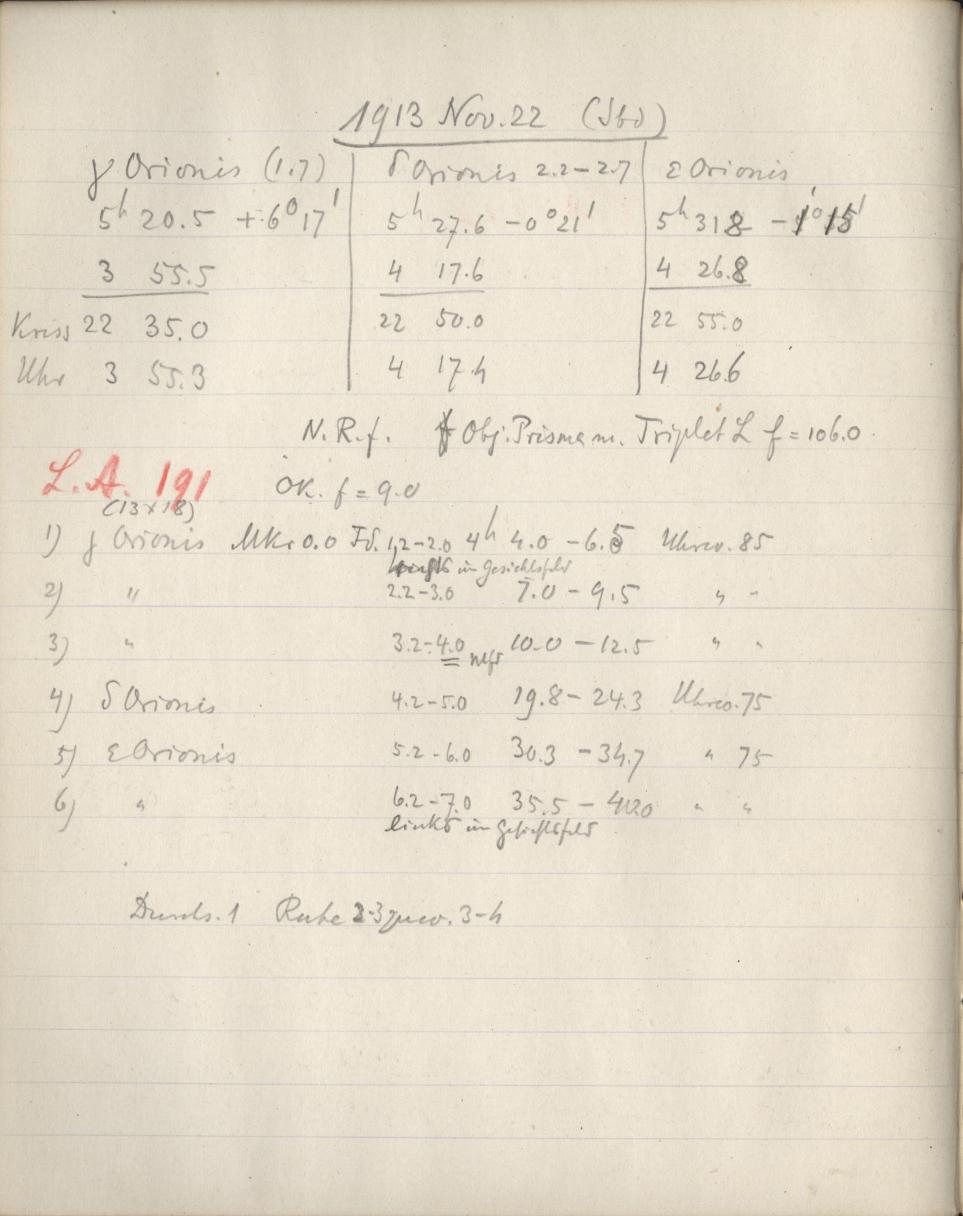 1913 Nov. 22 (Sbd)
γ Orionis (1.7) δ Orionis 2.2–2.7 ε Orionis
5h 20.5 +6° 17' 5h 27.6 –0° 21' 5h 31.8 –1° 15'
3 55.5 4 17.6 4 26.8
Kreis 22 35.0 22 50.0 22 55.0
Uhr 3 55.3 4 17.4 4 26.6
N.R.f. Obj. Prisma m. Triplet L f = 106.0
L.A. 191 OK. f = 9.0
(13 x 18)
1) γ Orionis Mkr 0.0 Fd. 1.2–2.0 4h 4.0 – 6.5 Uhrcv. 85
im Gesichtsfeld
2) " 2.2–3.0 7.0 – 9.5 " "
3) " 3.2–4.0 10.0 – 12.5 " "
4) δ Orionis 4.2–5.0 19.8 – 24.3 Uhrcv. 75
5) ε Orionis 5.2–6.0 30.3 – 34.7 " 75
6) " 6.2–7.0 35.5 – 40.0 " "
links im Gesichtsfeld
Durchs. 1 Ruhe 2-3 zuw. 3-4